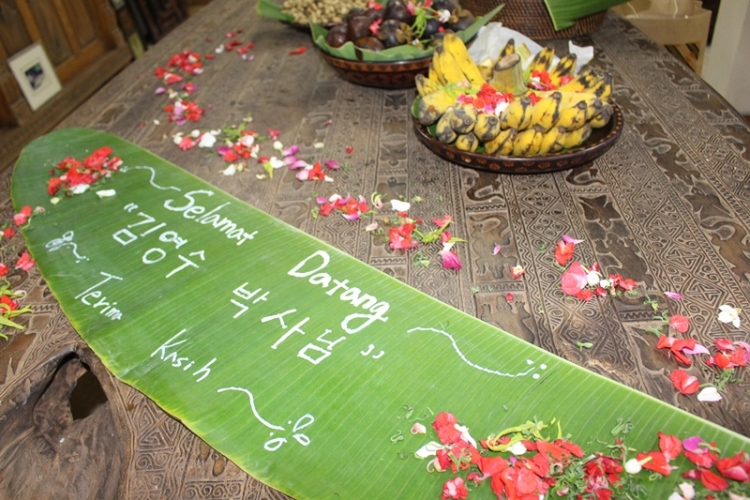 Selamat Datang
"김영수 박사님"
Terima Kasih